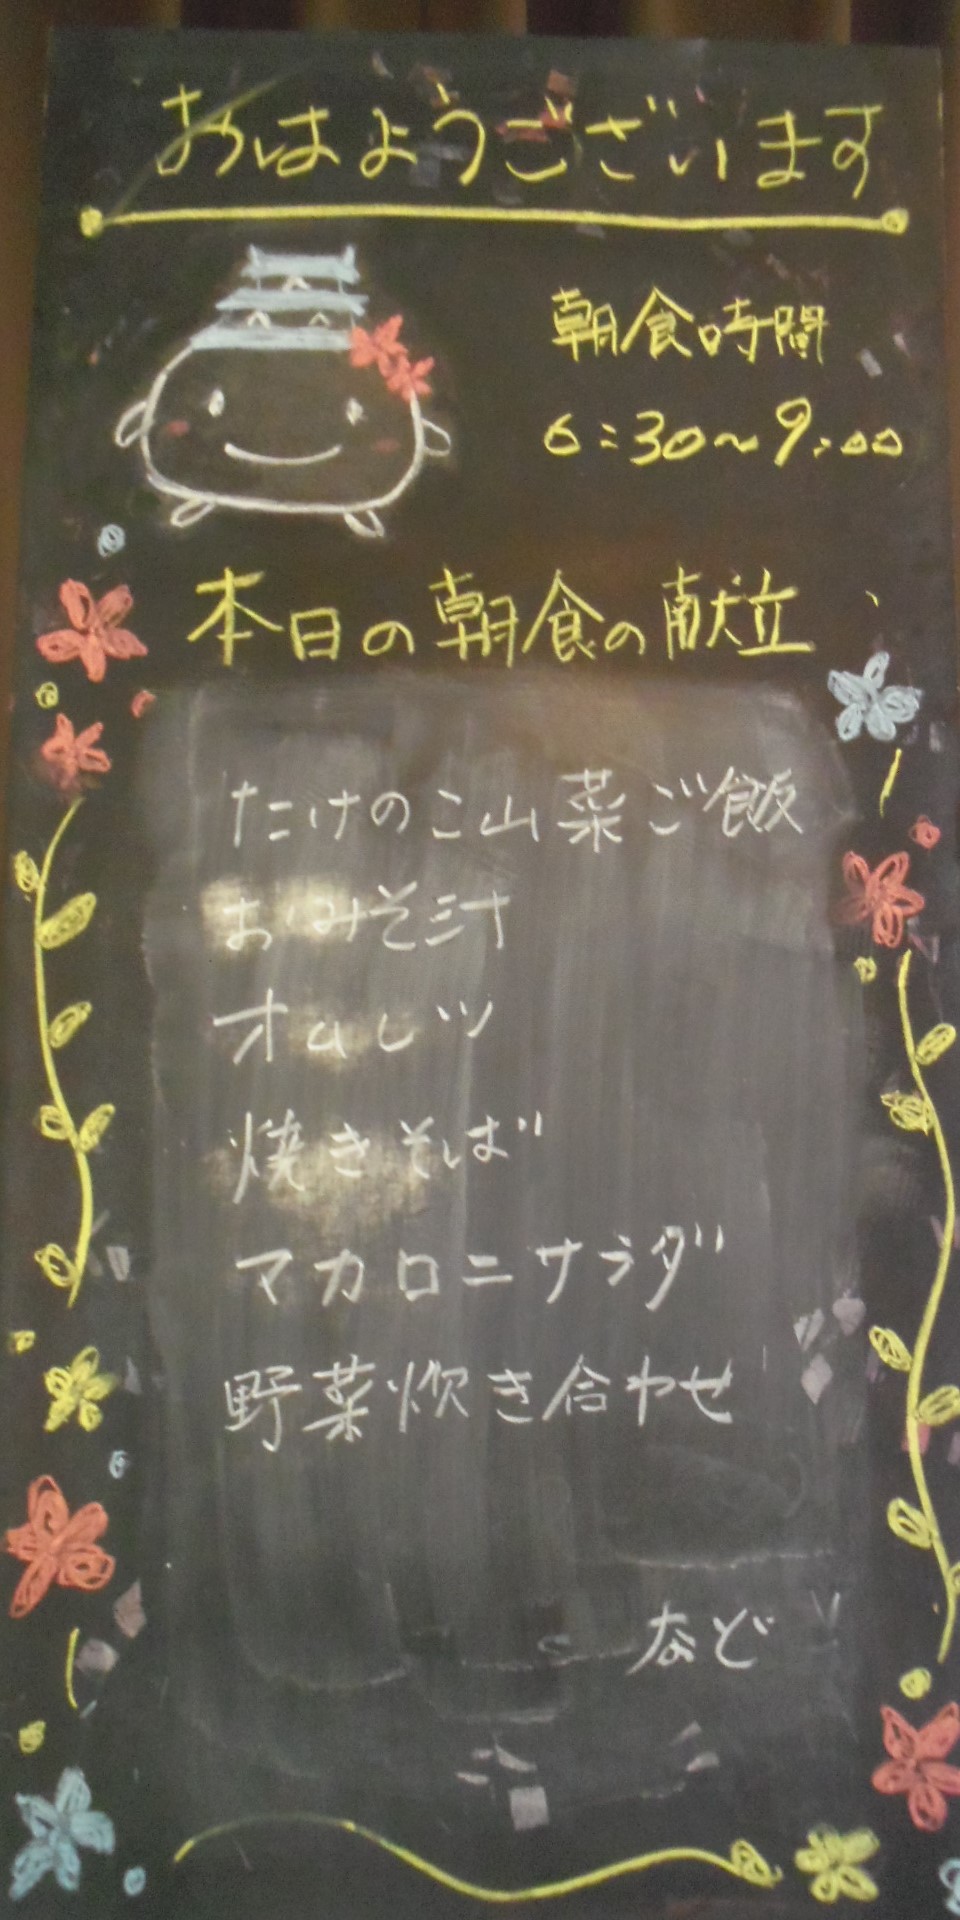 おはようございます
朝食時間
6:30~9:00
本日の朝食の献立
たけのこ山菜ご飯
おみそ汁
オムレツ
焼きそば
マカロニサラダ
野菜炊き合わせ
など